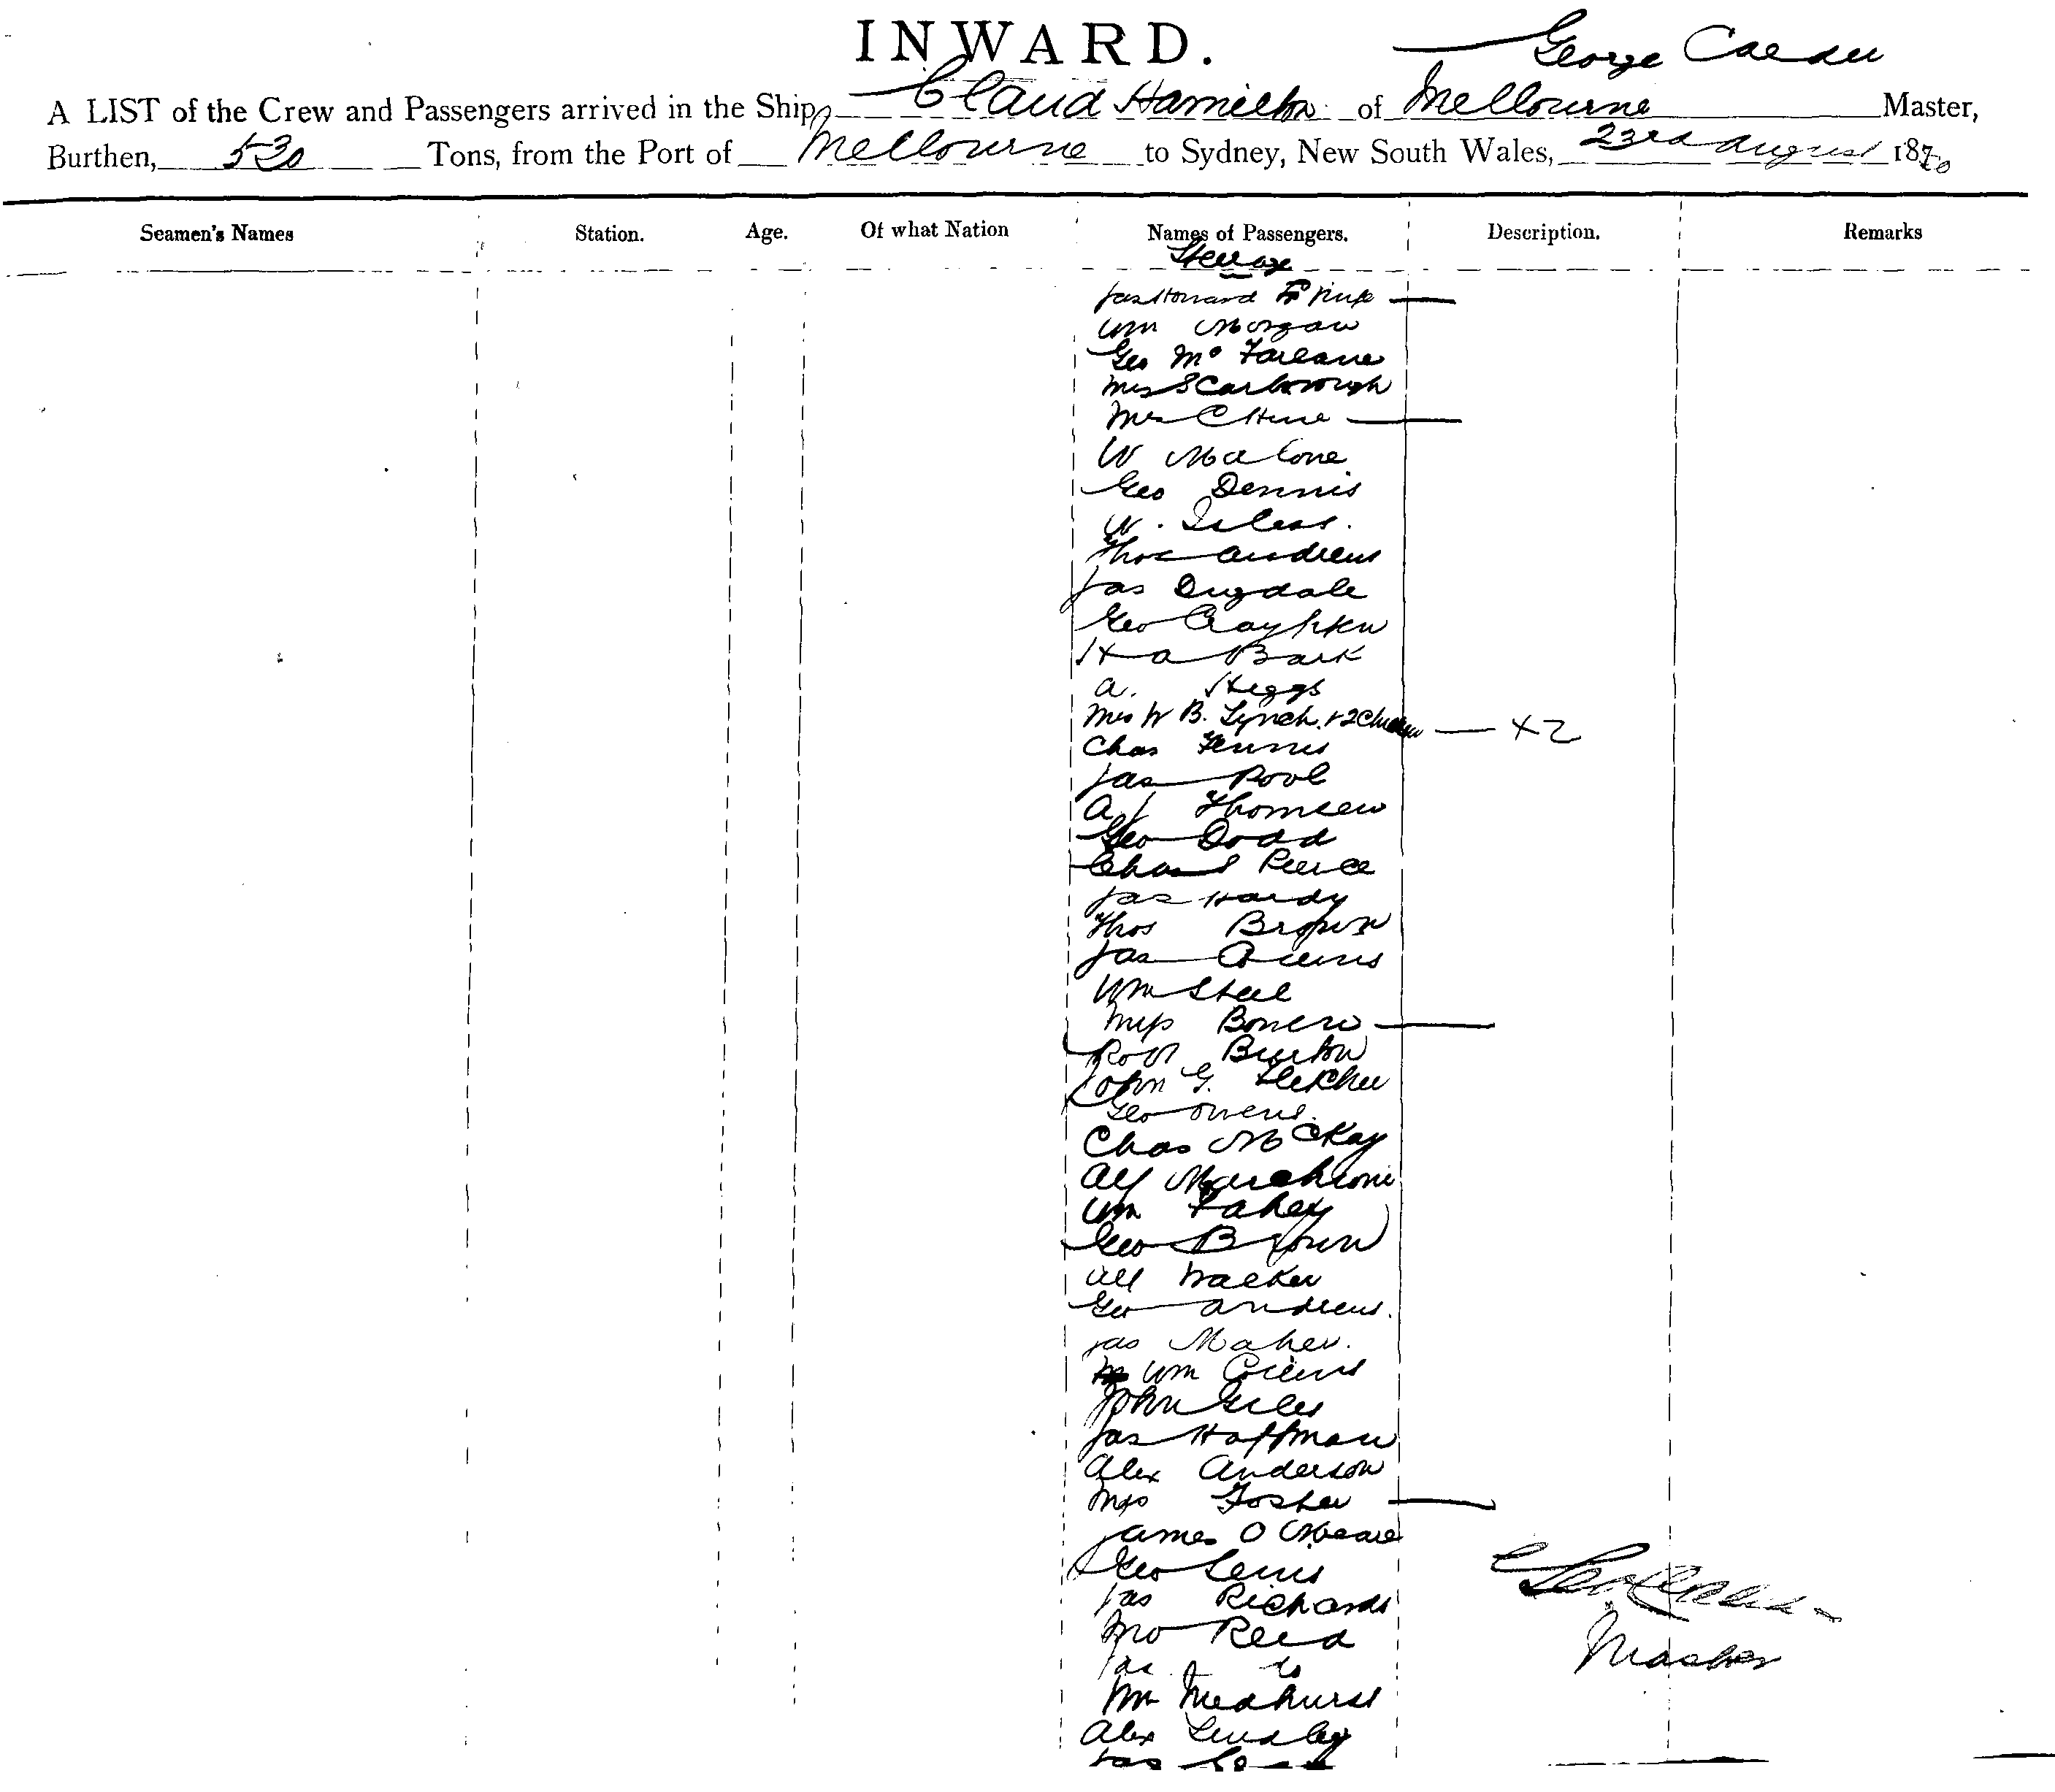 INWARD.
George Calder
A LIST of the Crew and Passengers arrived in the Ship Claud Hamilton of Melbourne Master,
Burthen, 530 Tons, from the Port of Melbourne to Sydney, New South Wales, 23rd August 1870
Seamen's Names Station. Age. Of what Nation Names of Passengers. Description. Remarks
Steerage
Jas Howard
Wm Morgan
Geo Mc Farlane
Mrs Scarborough
Mrs C Hine
W Malone
Geo Dennis
W.
Thos Andrews
Jas Dugdale
Geo
H A Bark
A. Heggs
Mrs W B. Lynch + 2 Children + 2
Chas
Jas Pool
A J Thomsen
Geo Dodd
Chas Peirce
Jas Hardy
Thos Brown
Jas
Wm Steel
Miss
Robt Burton
John G. Fletcher
Geo Owens.
Chas McKay
Alf
Wm Fahey
Geo Brown
Alf Walker
Geo Andrews.
Jas Maher.
Wm Collins
John Giles
Jas Hoffman
Alex Anderson
Mrs Foster
James O Meara
Geo Lewis
Jas Richards
Reed
Jas do
Medhurst
Alex Lindley
Jas
Geo Calder
Master